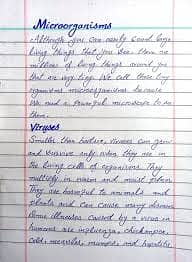 Microorganisms
Although you can easily see large
living things that you see there are
millions of living things around you
that are very tiny. We call these tiny
organisms microorganisms because
We need a Powerful microscope to see
them.
Viruses
Smaller than bacteria, viruses can grow
and survive only when they are in
the living cells of organisms. They
multiply in warm and moist places
They are harmful to animals and
plants and can cause many diseases
Some illnesses caused by a virus in
humans are influenza, chickenpox,
Cold, measles, mumps, and hepatitis.